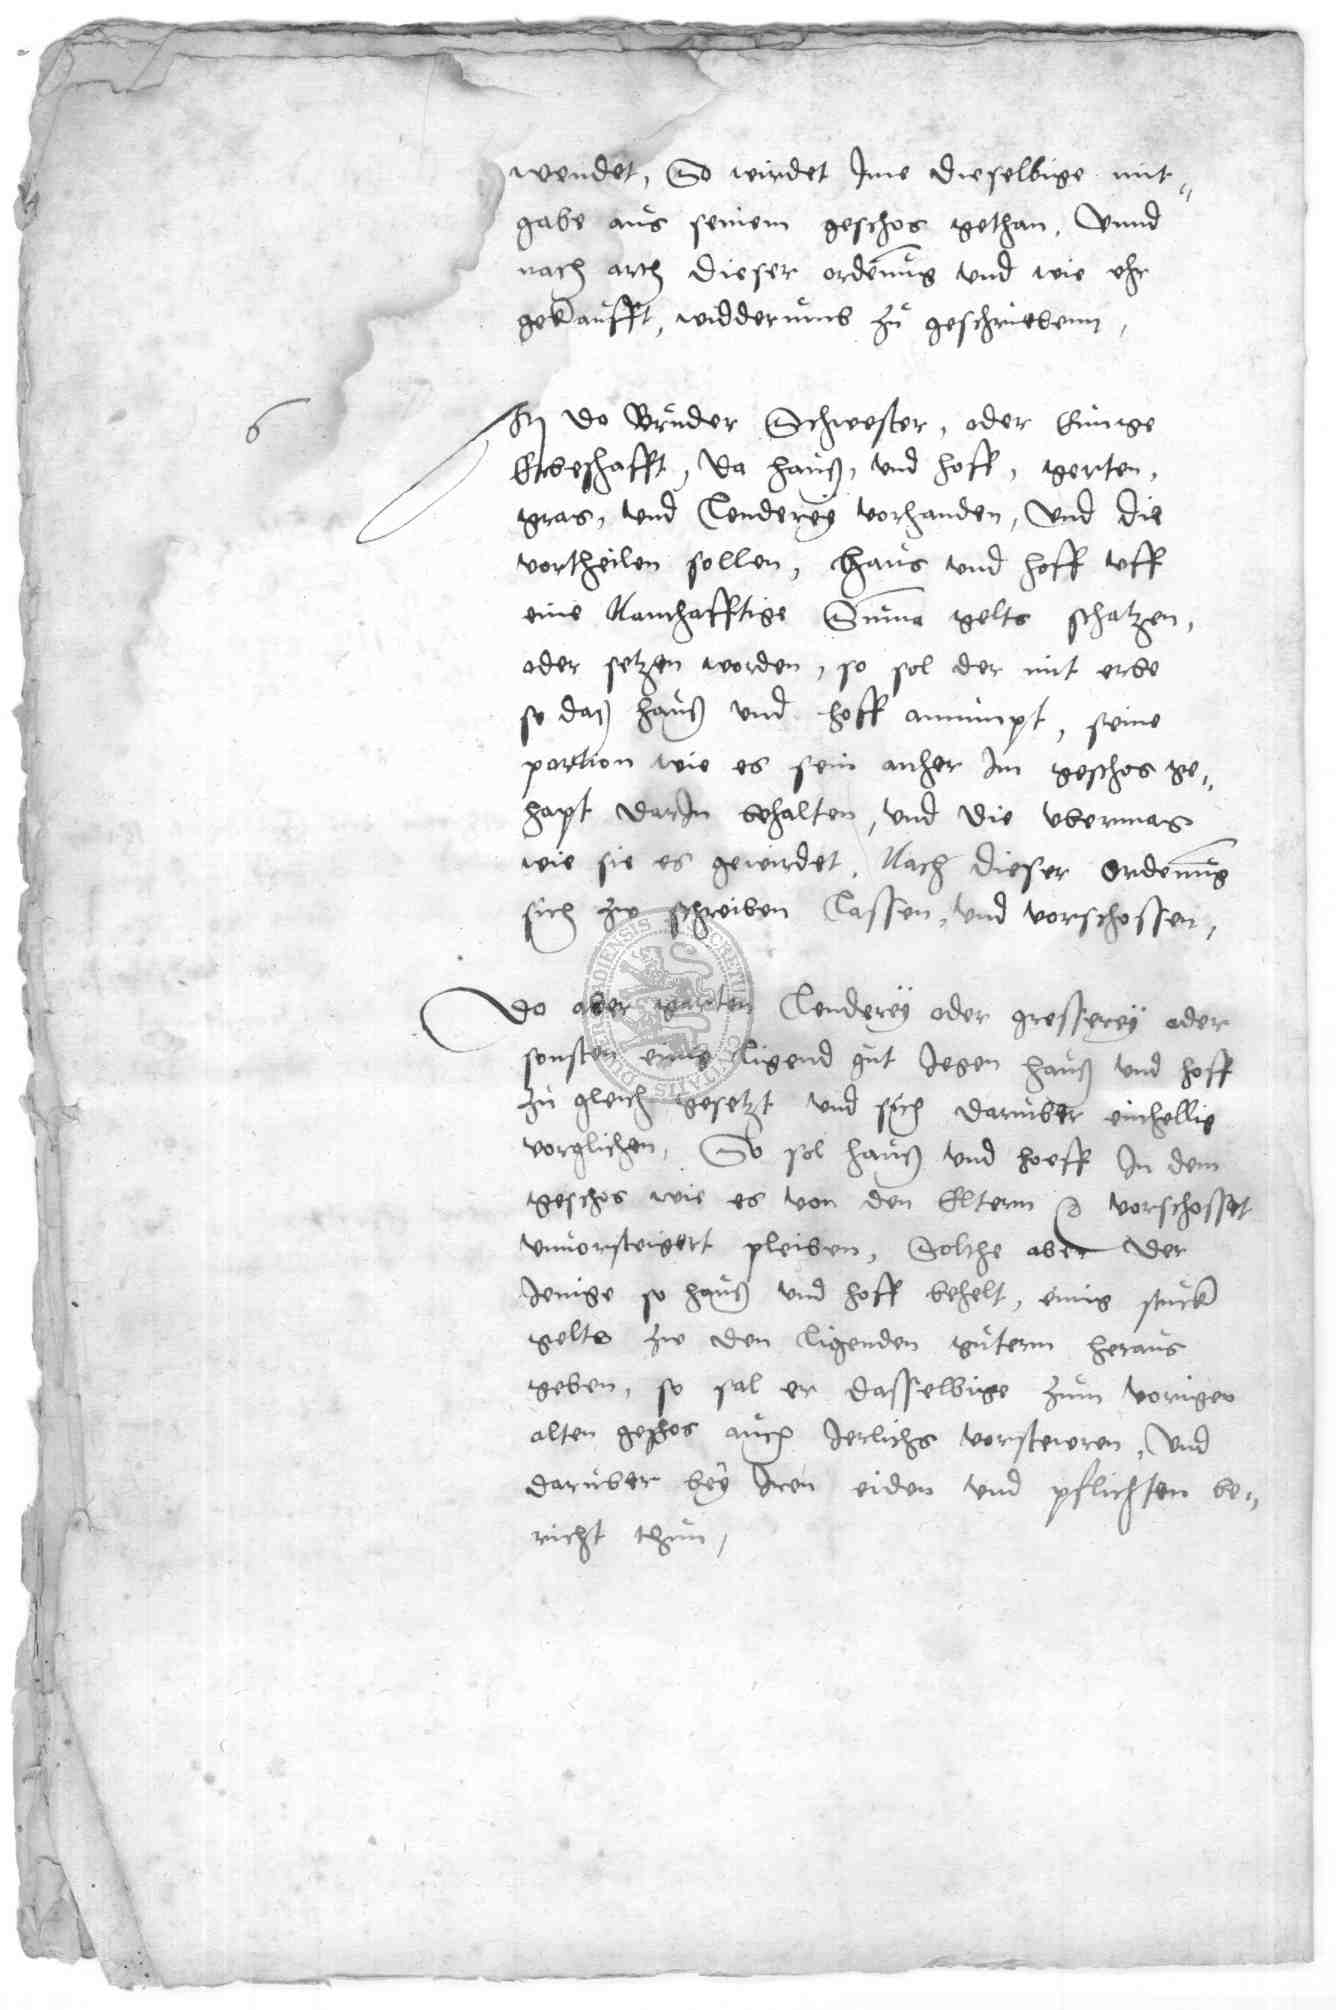 wendet, So wirdet Ime dieselbige mit-
gabe aus seinem geschos gethan, Vnnd
nach arth dieser ordenung vnd wie ehr
gekaufft, widderumb zu geschriebenn,
6
Itzo do Bruder Schwester, oder Einige
Erbeschafft, da hauß, vnd hoff, gerten,
gras, vnd Lenderey vorhanden, Vnd die
vortheilen sollen, haus vnd hoff vff
eine Namhafftige Summa gelts schatzen,
oder setzen worden, so sol der mit erbe
so daß hauß vnd hoff annimpt, seine
portion wie es sein anher Im geschos ge-
hapt darIn behalten, vnd die vbermas
wie sie es gewirdet, Nach dieser Ordenung
sich zw schreiben Lassen, vnd vorschossen,
Do aber garten Lenderey oder gresserey oder
sonsten einig ligend gut Jegen hauß vnd hoff
zu gleich gesetzt vnd sich daruber einhellig
vorglichen, So sol hauß vnd hoeff In dem
geschos wie es von den Elternn vorschosset
vnuorsteigert pleiben, Solthe aber der
Jenige so hauß vnd hoff behelt, einig stuck
gelts zw den ligenden guternn heraus
geben, so sal er dasselbige zum vorigen
alten geschos auch Jerlichs vorstewren, Vnd
daruber bey Iren eiden vnd pflichten be-
richt thun,